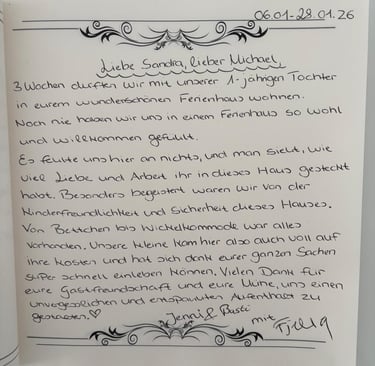 06.01-28.01.26
Liebe Sandra, lieber Michael,
3 Wochen durften wir mit unserer 1-jährigen Tochter
in eurem wunderschönen Ferienhaus wohnen.
Noch nie haben wir uns in einem Ferienhaus so wohl
und willkommen gefühlt.
Es fehlte uns hier an nichts, und man sieht, wie
viel Liebe und Arbeit ihr in dieses Haus gesteckt
habt. Besonders begeistert waren wir von der
Kinderfreundlichkeit und Sicherheit dieses Hauses.
Von Bettchen bis Wickelkommode war alles
vorhanden. Unsere kleine kam hier also auch voll auf
ihre Kosten und hat sich dank eurer ganzen Sachen
super schnell einleben können. Vielen Dank für
eure Gastfreundschaft und eure Mühe, uns einen
unvergesslichen und entspannten Aufenthalt zu
gestalten.♡
Jenni &
mit